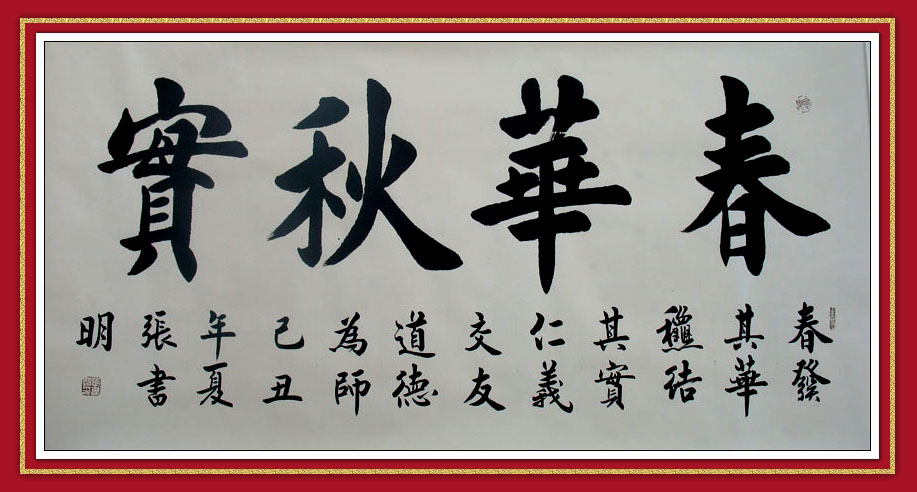 春華秋實
春發
其華
龝結
其實
仁義
交友
道德
為師
己丑
年夏
張書
明